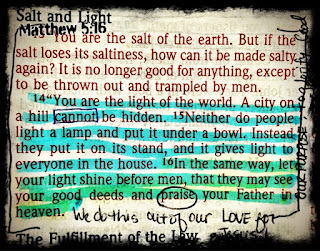 Salt and Light
Matthew 5:16
13 "You are the salt of the earth. But if the
salt loses its saltiness, how can it be made salty
again? It is no longer good for anything, except
to be thrown out and trampled by men.
14 "You are the light of the world. A city on
a hill cannot be hidden. 15 Neither do people
light a lamp and put it under a bowl. Instead
they put it on its stand, and it gives light to
everyone in the house. 16 In the same way, let
your light shine before men, that they may see
your good deeds and praise your Father in
heaven. We do this out of our LOVE for
Jesus!
The Fulfillment of the Law
OUR PURPOSE